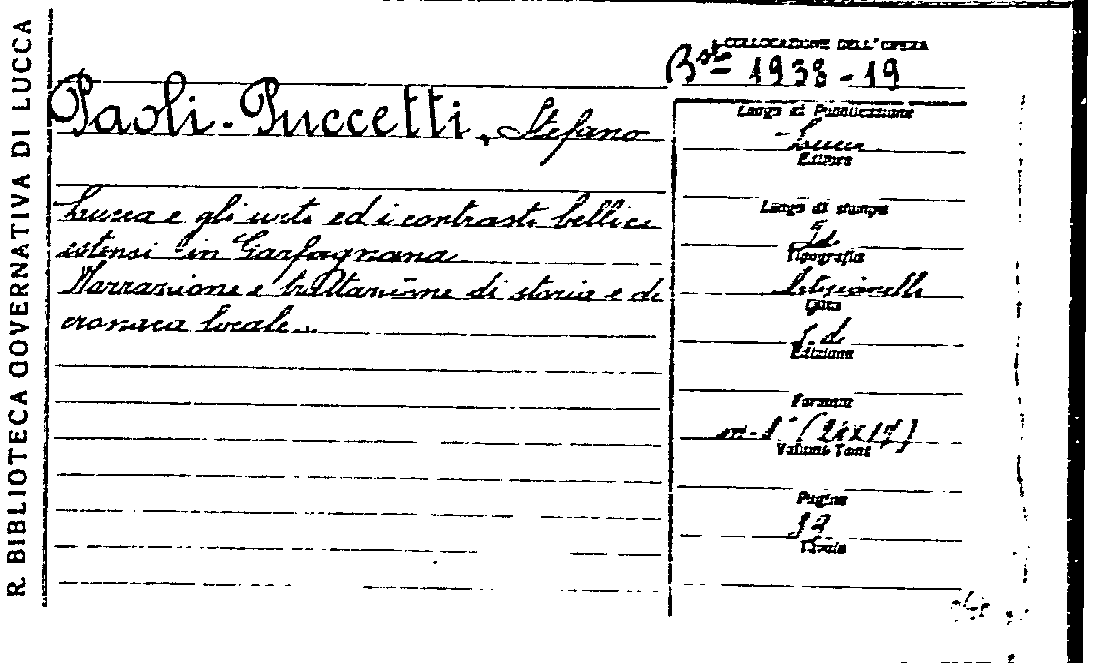 R. BIBLIOTECA GOVERNATIVA DI LUCCA
COLLOCAZIONE DELL'OPERA
1938-19
Paoli-Puccetti, Stefano
Lucca e gli urti ed i contrasti bellici
estensi in Garfagnana
Narrazione e trattazione di storia e di
cronaca locale.
Luogo di Pubblicazione
Lucca
Editore
Luogo di stampa
Id
Tipografia
Data
s. d.
Edizione
Formato
in-8°
Volumi Tomi
Pagine
Titolo